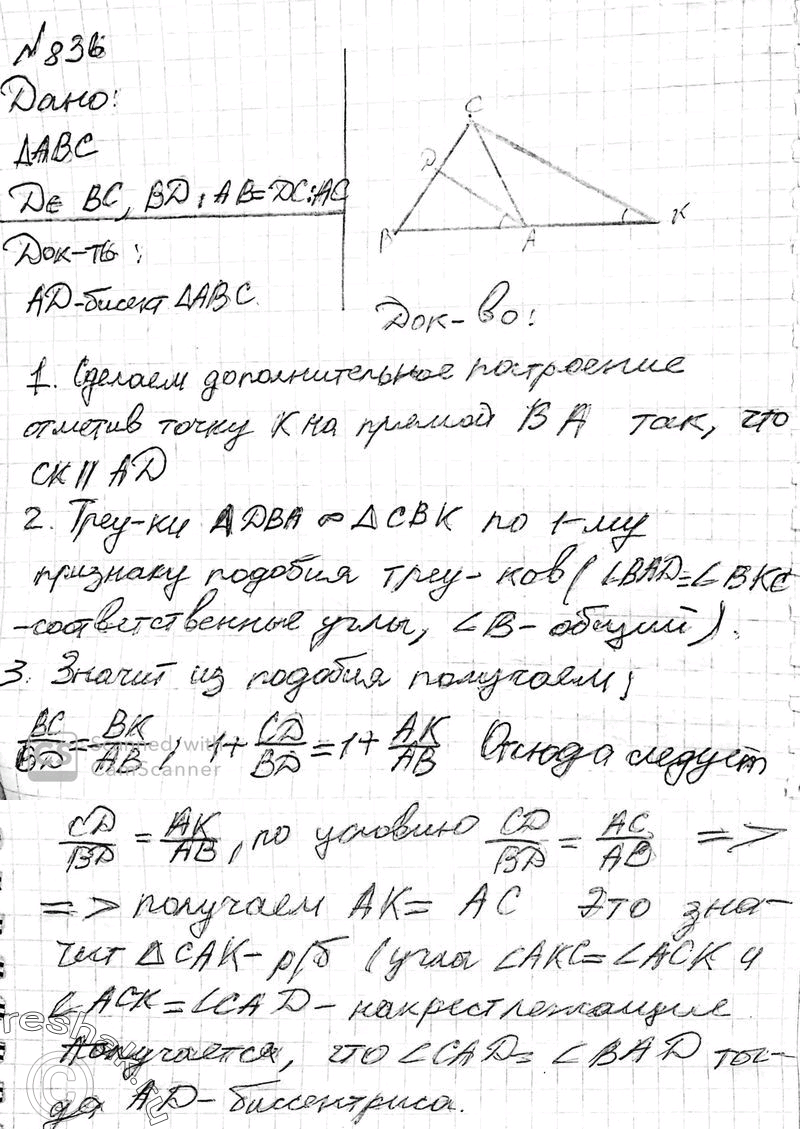 №836
Дано:
ΔABC
D∈ BC, BD:AB=DC:AC
Док-ть:
AD-бисект ΔABC.
C
D
B
A
K
Док-во:
1. Сделаем дополнительное построение
отметив точку K на прямой BA так, что
CK || AD
2. Треу-ки ΔDBA ∞ ΔCBK по 1-му
признаку подобия треу-ков (∠BAD=∠BKC
-соответственные углы, ∠B- общий).
3. Значит из подобия получаем;
BC/BD = BK/AB; 1+ CD/BD = 1+ AK/AB Отсюда следует
Scanned with
CS CamScanner
CD/BD = AK/AB, по условию CD/BD = AC/AB =>
=> получаем AK= AC Это зна-
чит ΔCAK- р/б (углы ∠AKC=∠ACK и
∠ACK=∠CAD- накрестлежащие
Получается, что ∠CAD= ∠BAD тог-
да AD-биссектриса.
reshak.ru